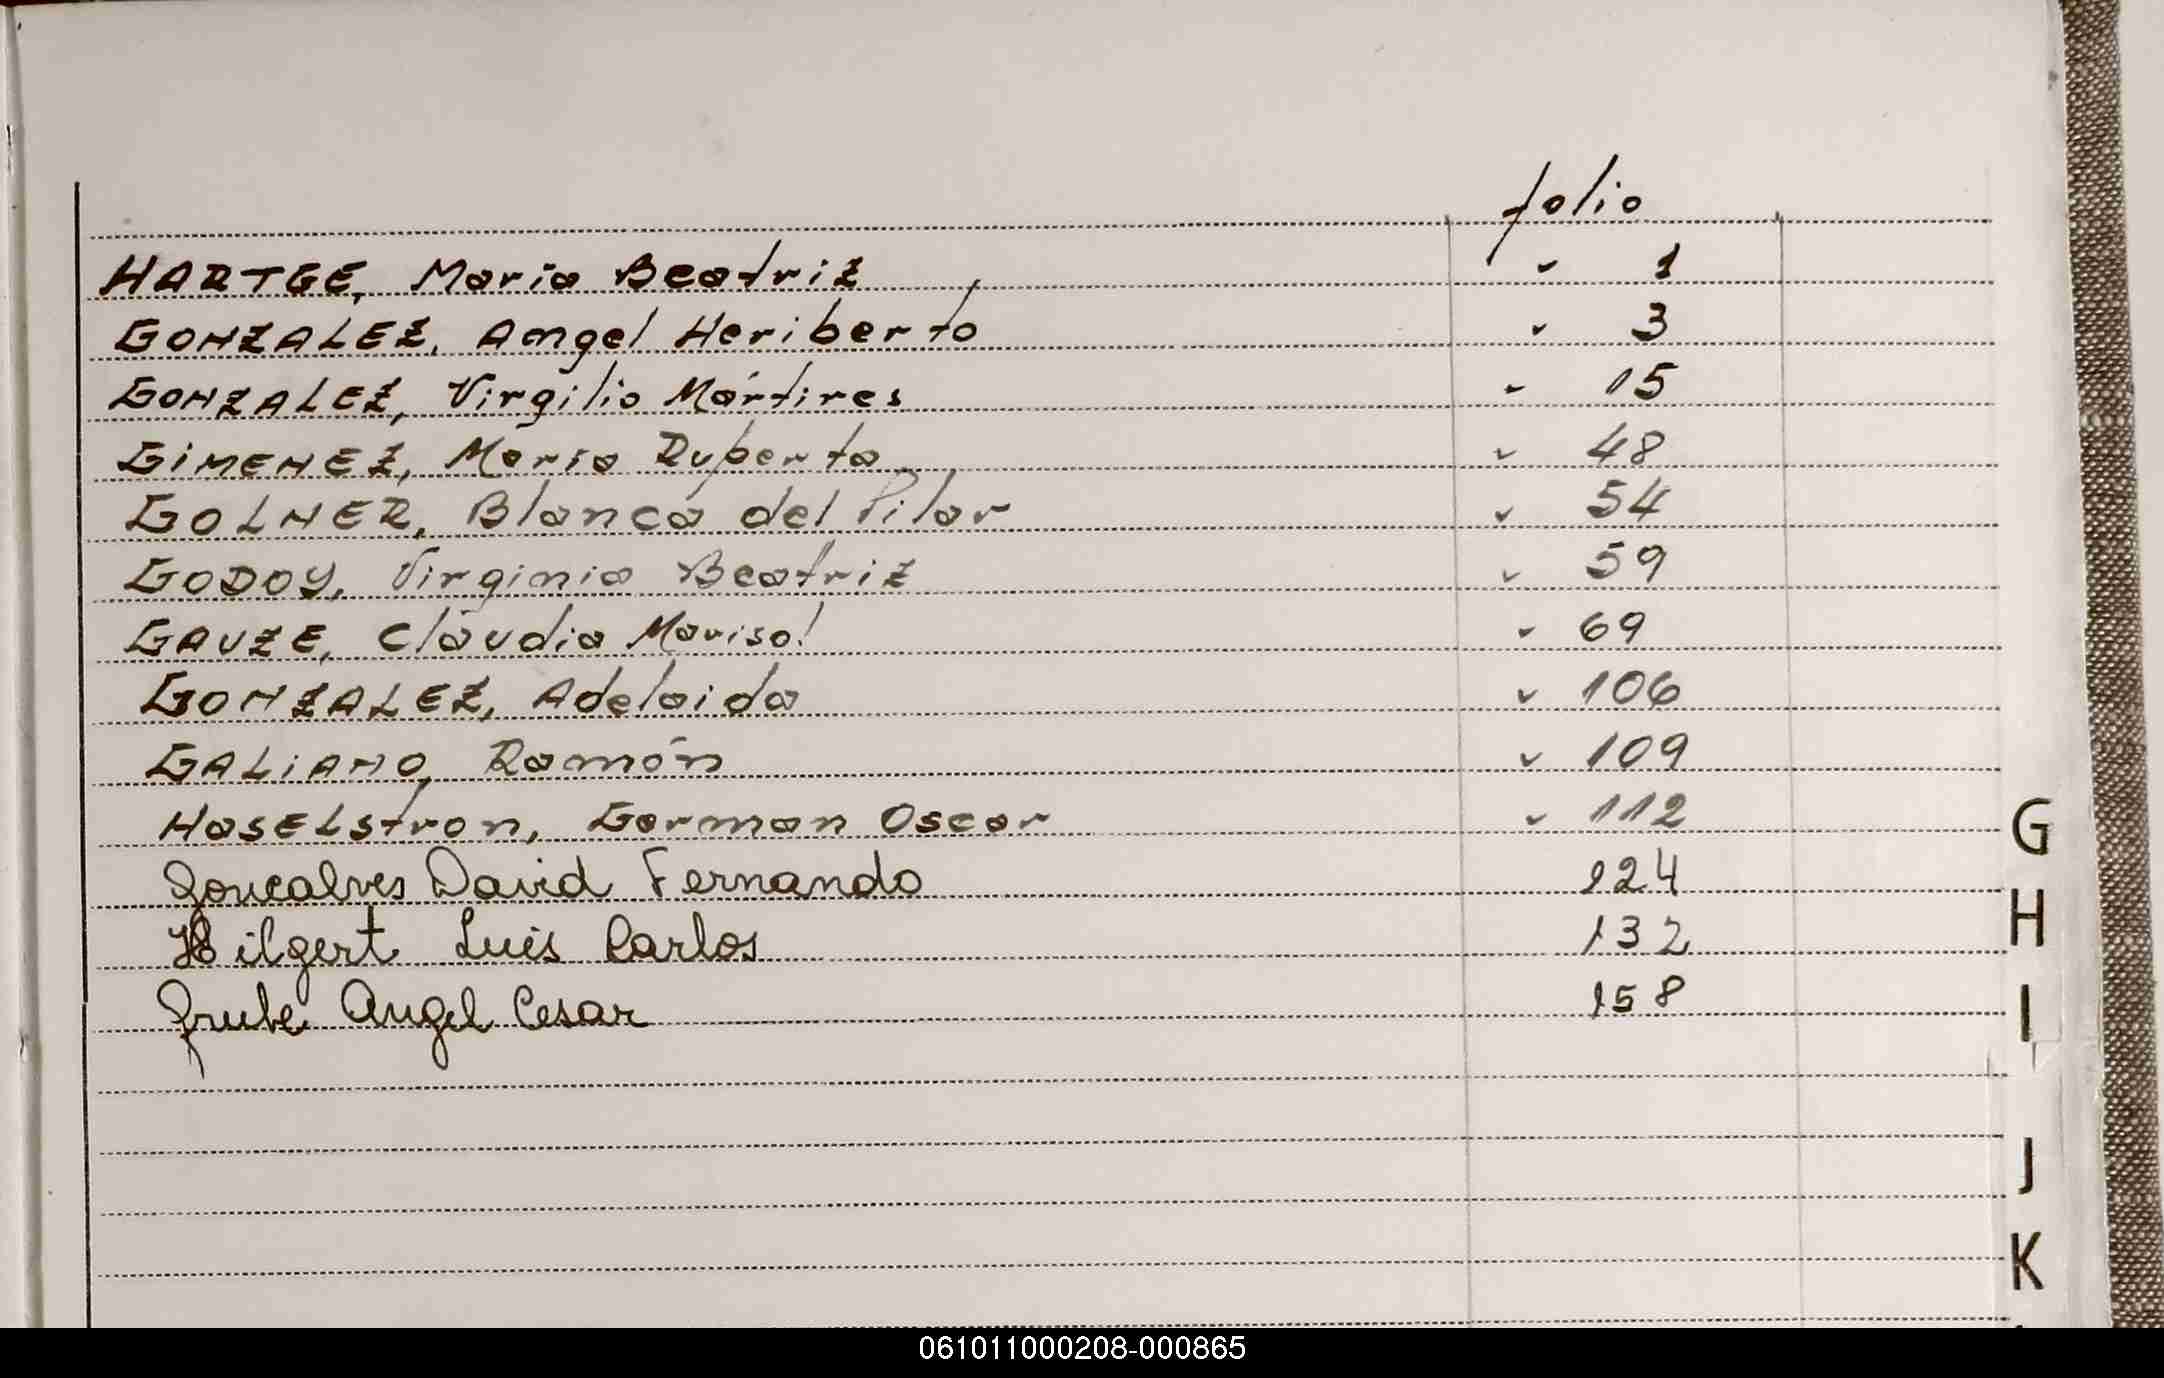 folio
HARTGE, Maria Beatriz ✓ 1
GONZALEZ, Angel Heriberto ✓ 3
GONZALEZ, Virgilio Mártires ✓ 15
GIMENEZ, Maria Ruperta ✓ 48
GOLNER, Blanca del Pilar ✓ 54
GODOY, Virginia Beatriz ✓ 59
GAUZE, Claudia Marisol ✓ 69
GONZALEZ, Adelaida ✓ 106
GALIANO, Ramón ✓ 109
HASELstron, German Oscar ✓ 112
Goncalves David Fernando 124
Hilgert Luis Carlos 132
Grube Angel Cesar 158
G
H
I
J
K
061011000208-000865